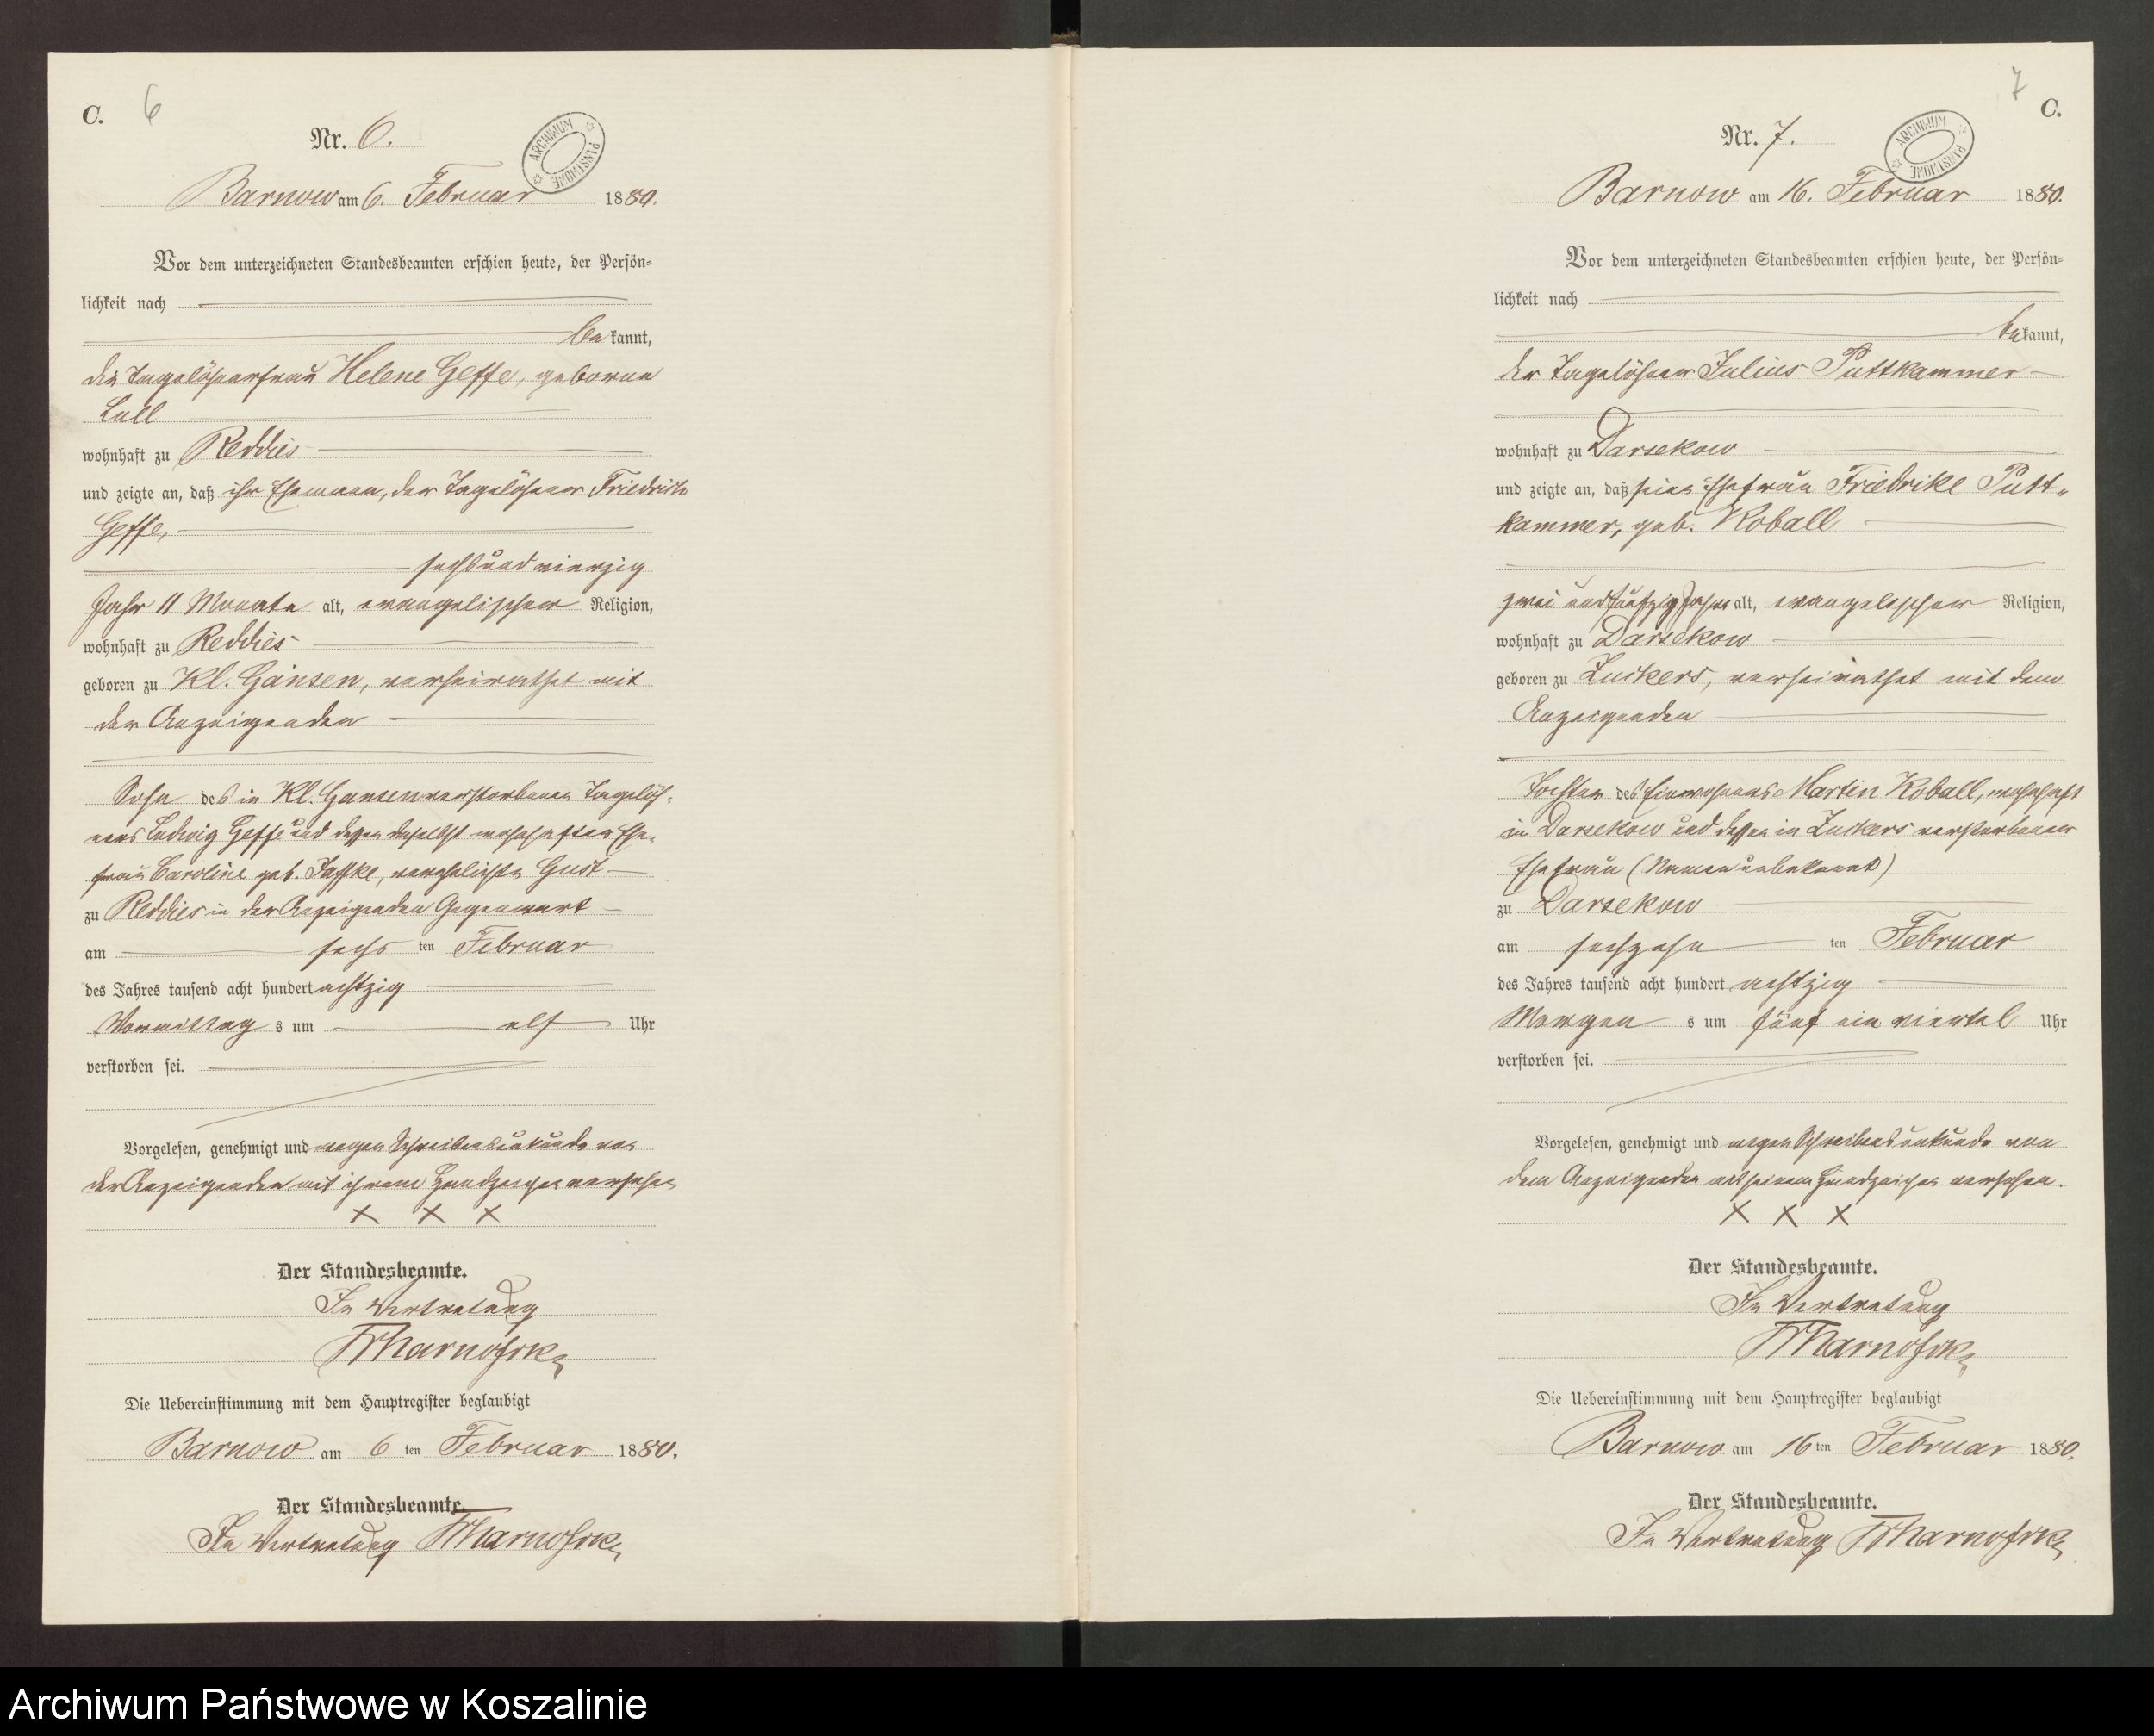 C. 6
Nr. 6.
ARCHIWUM PAŃSTWOWE
Barnow am 6. Februar 1880.
Vor dem unterzeichneten Standesbeamten erschien heute, der Persön-
lichkeit nach
bekannt,
die Tagelöhnerfrau Helene Geffe, geborne
Lull
wohnhaft zu Reddies
und zeigte an, daß ihr Ehemann, der Tagelöhner Friedrich
Geffe,
sechsundvierzig
Jahr 11 Monate alt, evangelischer Religion,
wohnhaft zu Reddies
geboren zu Kl. Gansen, verheirathet mit
der Anzeigenden
Sohn des in Kl. Gansen verstorbenen Tagelöh-
ners Ludwig Geffe und dessen daselbst wohnhaften Ehe-
frau Caroline geb. Jaffke, verehelichte Gust
zu Reddies in der Anzeigenden Gegenwart
am sechs ten Februar
des Jahres tausend acht hundert achtzig
Vormittag s um elf Uhr
verstorben sei.
Vorgelesen, genehmigt und wegen Schreibensunkunde von
der Anzeigenden mit ihrem Handzeichen versehen
X X X
Der Standesbeamte.
In Vertretung
Die Uebereinstimmung mit dem Hauptregister beglaubigt
Barnow am 6 ten Februar 1880.
Der Standesbeamte.
In Vertretung
7 C.
Nr. 7.
ARCHIWUM PAŃSTWOWE
Barnow am 16. Februar 1880.
Vor dem unterzeichneten Standesbeamten erschien heute, der Persön-
lichkeit nach
bekannt,
der Tagelöhner Julius Puttkammer
wohnhaft zu Darsekow
und zeigte an, daß seine Ehefrau Friedrike Putt-
kammer, geb. Koball
zwei und fünfzig Jahre alt, evangelischer Religion,
wohnhaft zu Darsekow
geboren zu Zuckers, verheirathet mit dem
Anzeigenden
Tochter des Einwohners Martin Koball, wohnhaft
in Darsekow und dessen in Zuckers verstorbenen
Ehefrau (Namen unbekannt)
zu Darsekow
am sechzehn ten Februar
des Jahres tausend acht hundert achtzig
Morgen s um fünf ein viertel Uhr
verstorben sei.
Vorgelesen, genehmigt und wegen Schreibensunkunde von
dem Anzeigenden mit seinem Handzeichen versehen.
X X X
Der Standesbeamte.
In Vertretung
Die Uebereinstimmung mit dem Hauptregister beglaubigt
Barnow am 16 ten Februar 1880.
Der Standesbeamte.
In Vertretung
Archiwum Państwowe w Koszalinie